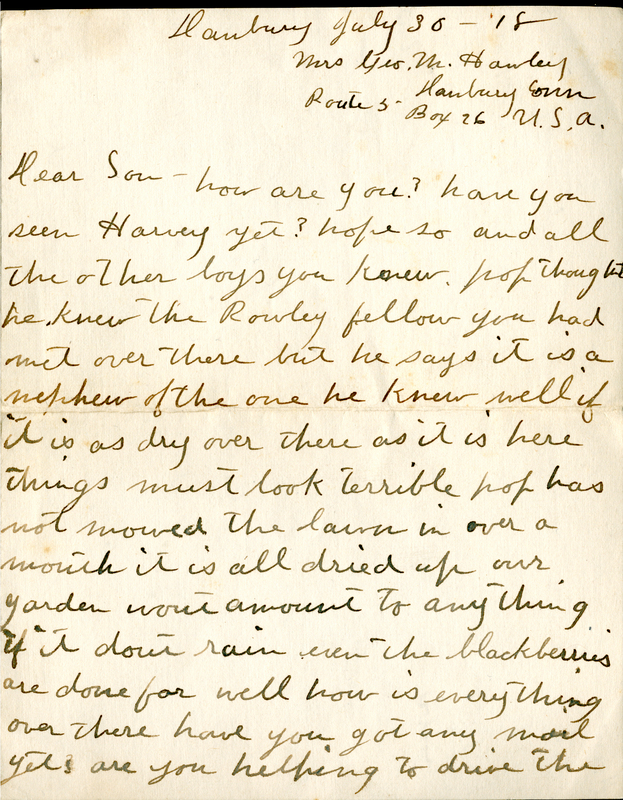 Danbury July 30 - '18
Mrs Geo. M. Hawley
Route 5 - Danbury Conn
Box 26 U.S.A.
Dear Son - how are you? have you
seen Harvey yet? hope so and all
the other boys you knew. pop thought
he knew the Rowley fellow you had
met over there but he says it is a
nephew of the one he knew well if
it is as dry over there as it is here
things must look terrible pop has
not mowed the lawn in over a
month it is all dried up our
garden wont amount to anything
if it dont rain even the blackberries
are done for well how is everything
over there have you got any mail
yet? are you helping to drive the